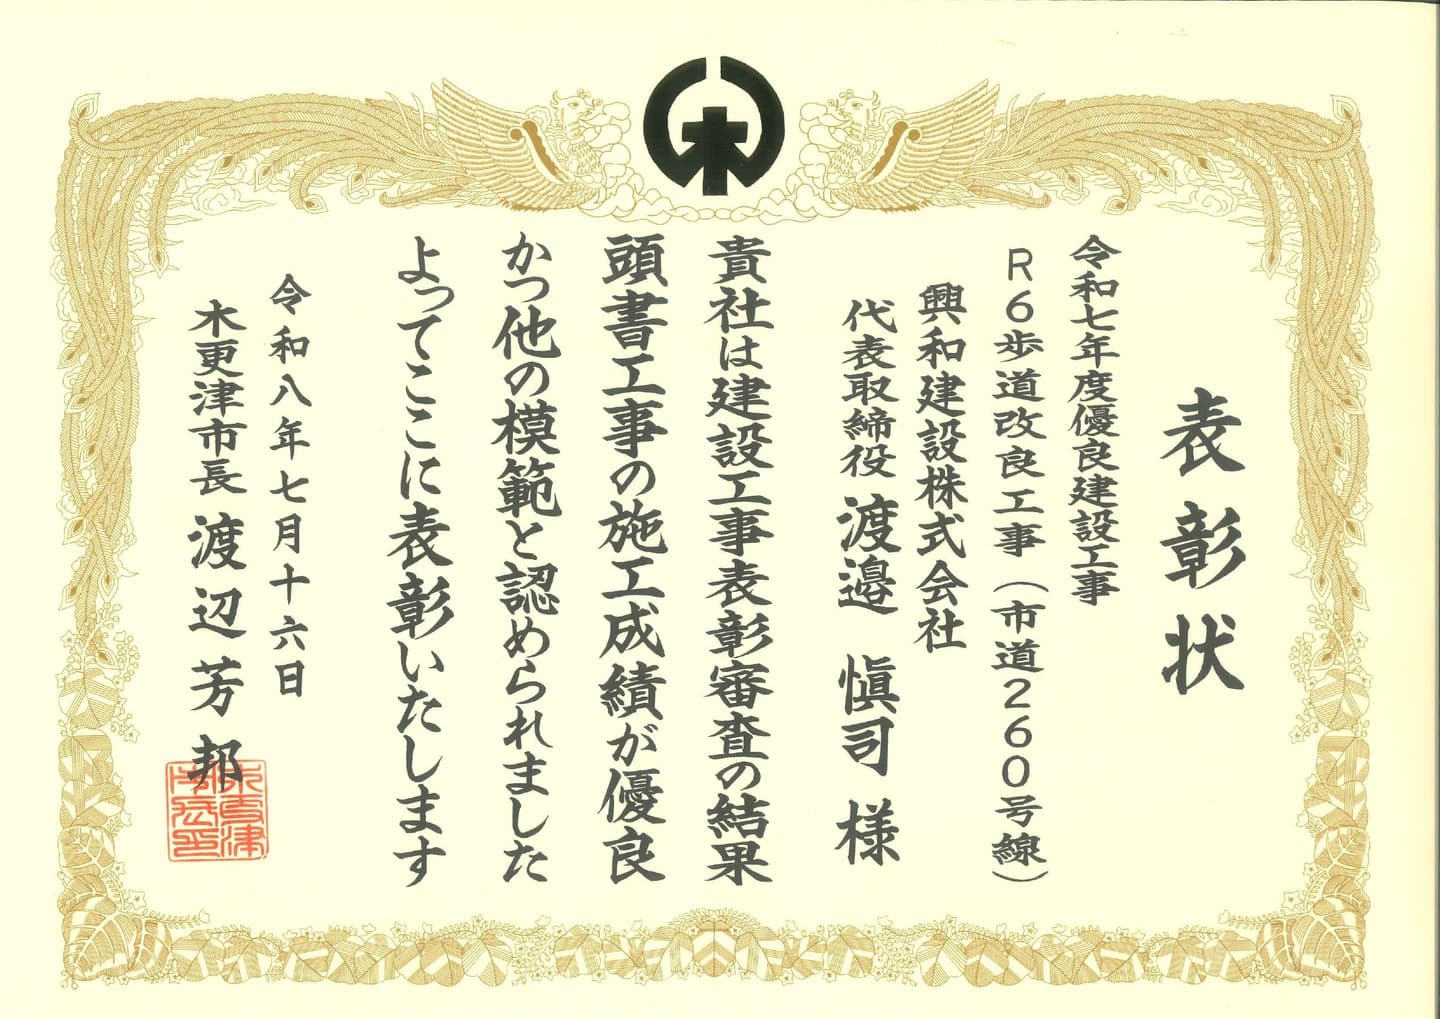 表彰状
令和七年度優良建設工事
R6歩道改良工事(市道260号線)
興和建設株式会社
代表取締役 渡邉 愼司 様
貴社は建設工事表彰審査の結果
頭書工事の施工成績が優良
かつ他の模範と認められました
よってここに表彰いたします
令和八年七月十六日
木更津市長 渡辺芳邦
木更津市長之印